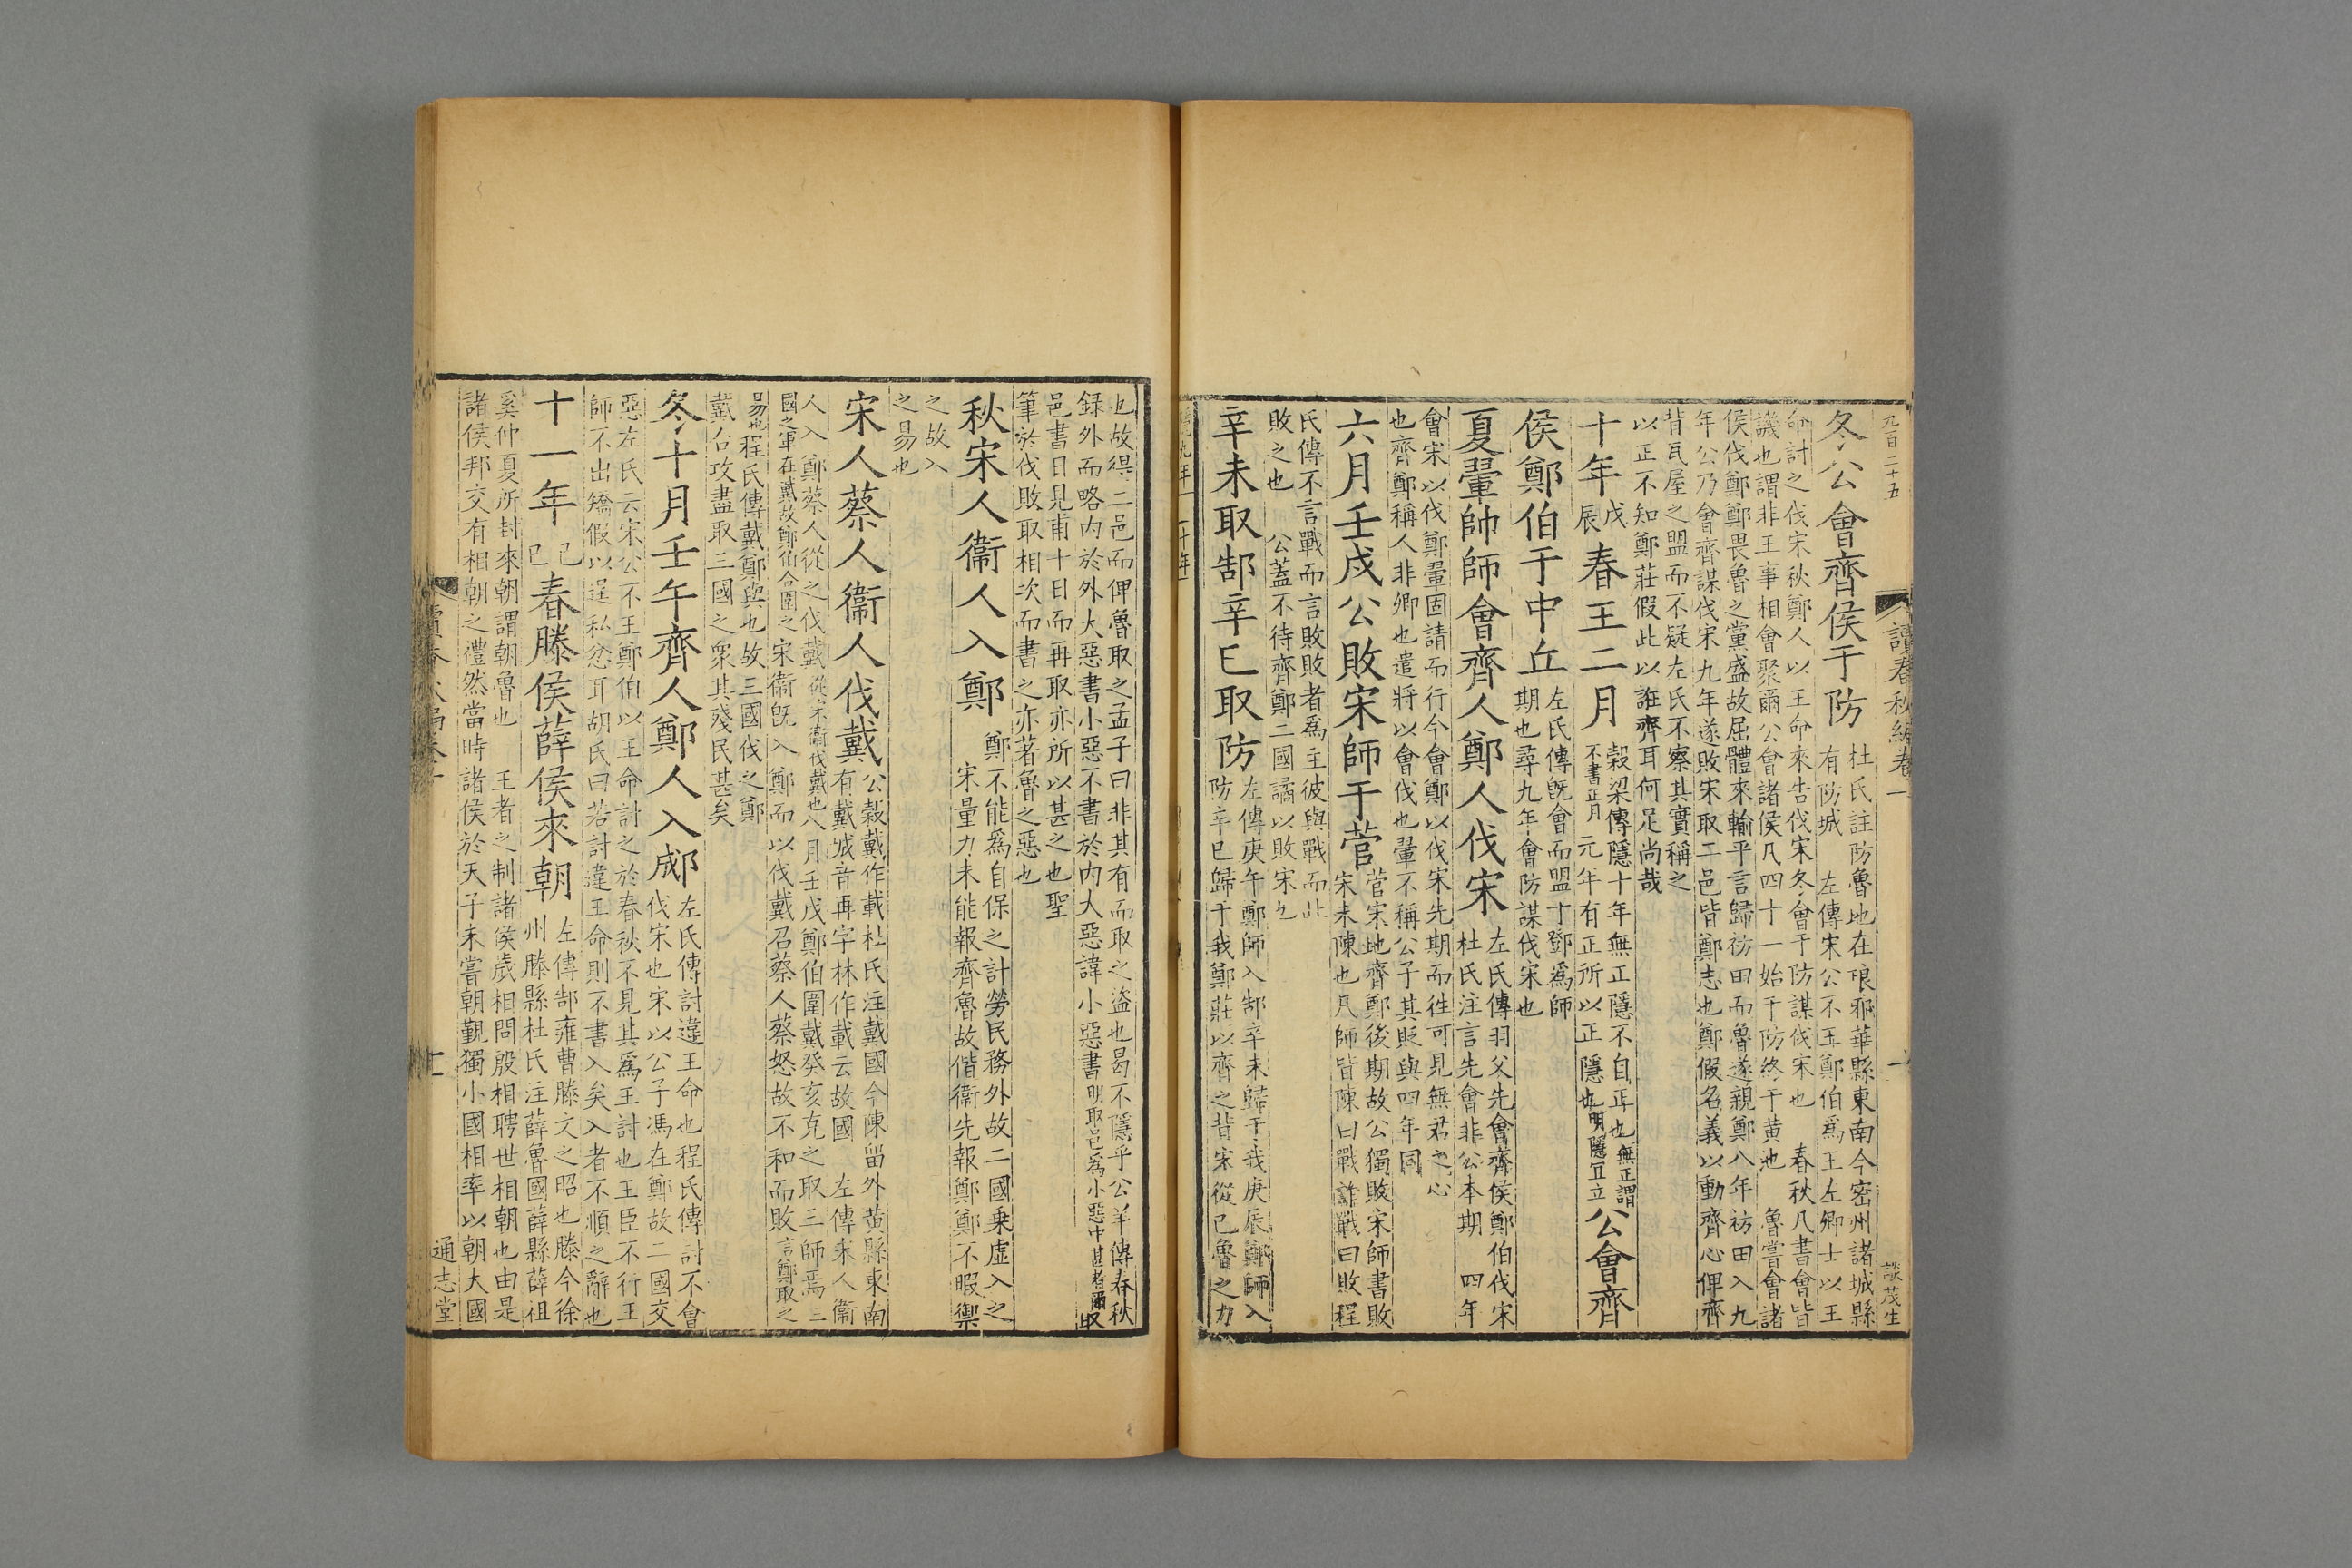 九百二十五
讀春秋編卷一
談茂生
冬公會齊侯于防
杜氏註防魯地在琅琊華縣東南今密州諸城縣
有防城　左傳宋公不王鄭伯爲王左卿士以王
命討之伐宋秋鄭人以王命來告伐宋冬會于防謀伐宋也　春秋凡書會皆
譏也謂非王事相會聚爾公會諸侯凡四十一始于防終于黄池　魯嘗會諸
侯伐鄭鄭畏魯之黨盛故屈體來輸平言歸祊田而魯遂親鄭八年祊田入九
年公乃會齊謀伐宋九年遂敗宋取二邑皆鄭志也鄭假名義以動齊心俾齊
背瓦屋之盟而不疑左氏不察其實稱之
以正不知鄭莊假此以誑齊耳何足尚哉
十年戊辰春王二月
榖梁傳隱十年無正隱不自正也無正謂
不書正月元年有正所以正隱也明隱宜立
公會齊
侯鄭伯于中丘
左氏傳旣會而盟于鄧爲師
期也尋九年會防謀伐宋也
夏翬帥師會齊人鄭人伐宋
左氏傳羽父先會齊侯鄭伯伐宋
杜氏注言先會非公本期　四年
會宋以伐鄭翬固請而行今會鄭以伐宋先期而徃可見無君之心
也齊鄭稱人非卿也遣將以會伐也翬不稱公子其貶與四年同
六月壬戌公敗宋師于菅
菅宋地齊鄭後期故公獨敗宋師書敗
宋未陳也凡師皆陳曰戰詐戰曰敗程
氏傳不言戰而言敗敗者爲主彼與戰而此
敗之也　公蓋不待齊鄭二國譎以敗宋也
辛未取郜辛巳取防
左傳庚午鄭師入郜辛未歸于我庚辰鄭師入
防辛巳歸于我鄭莊以齊之背宋從已魯之力
也故得二邑而俾魯取之孟子曰非其有而取之盜也曷不隱乎公羊傳春秋
録外而略内於外大惡書小惡不書於内大惡諱小惡書明取邑爲小惡中甚者爾取
邑書日見甫十日而再取亦所以甚之也聖
筆於伐敗取相次而書之亦著魯之惡也
秋宋人衞人入鄭
鄭不能爲自保之計勞民務外故二國乗虚入之
宋量力未能報齊魯故偕衞先報鄭鄭不暇禦
之故入
之易也
宋人蔡人衞人伐戴
公榖戴作載杜氏注戴國今陳留外黄縣東南
有戴城音再字林作載云故國　左傳宋人衞
人入鄭蔡人從之伐戴從宋衞伐戴也八月壬戌鄭伯圍戴癸亥克之取三師焉三
國之軍在戴故鄭伯合圍之宋衞旣入鄭而以伐戴召蔡人蔡人怒故不和而敗言鄭取之
易也程氏傳戴鄭與也故三國伐之鄭
戴合攻盡取三國之衆其殘民甚矣
冬十月壬午齊人鄭人入郕
左氏傳討違王命也程氏傳討不會
伐宋也宋以公子馮在鄭故二國交
惡左氏云宋公不王鄭伯以王命討之於春秋不見其爲王討也王臣不行王
師不出矯假以逞私忿耳胡氏曰若討違王命則不書入矣入者不順之辭也
十一年己巳春滕侯薛侯來朝
左傳郜雍曹滕文之昭也滕今徐
州滕縣杜氏注薛魯國薛縣薛祖
奚仲夏所封來朝謂朝魯也　王者之制諸侯歲相問殷相聘世相朝也由是
諸侯邦交有相朝之禮然當時諸侯於天子未嘗朝覲獨小國相率以朝大國
通志堂